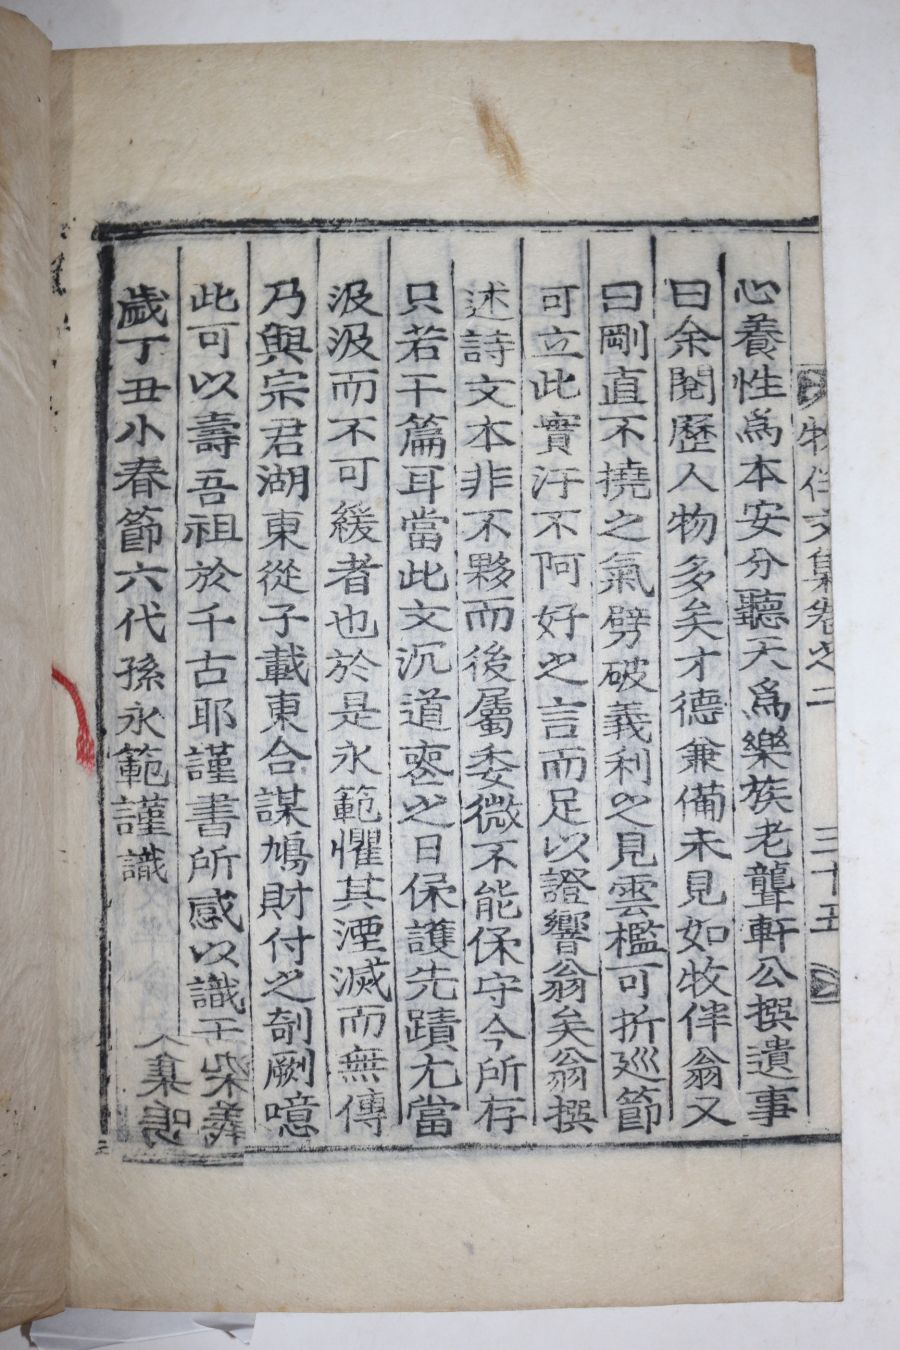 牧伴文集卷之二 三十五
心養性爲本安分聽天爲樂族老聾軒公撰遺事
曰余閱歷人物多矣才德兼備未見如牧伴翁又
曰剛直不撓之氣劈破義利之見雲檻可折廵節
可立此實汙不阿好之言而足以證響翁矣翁撰
述詩文本非不夥而後屬委微不能保守今所存
只若干篇耳當此文沉道喪之日保護先蹟尤當
汲汲而不可緩者也於是永範懼其湮滅而無傳
乃與宗君湖東從子載東合謀鳩財付之剞劂噫
此可以壽吾祖於千古耶謹書所感以識于
歲丁丑小春節六代孫永範謹識